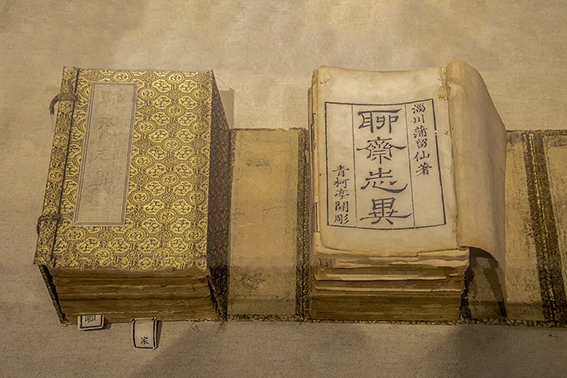 聊齋志異
淄川蒲留仙著
聊齋志異
青柯亭開彫